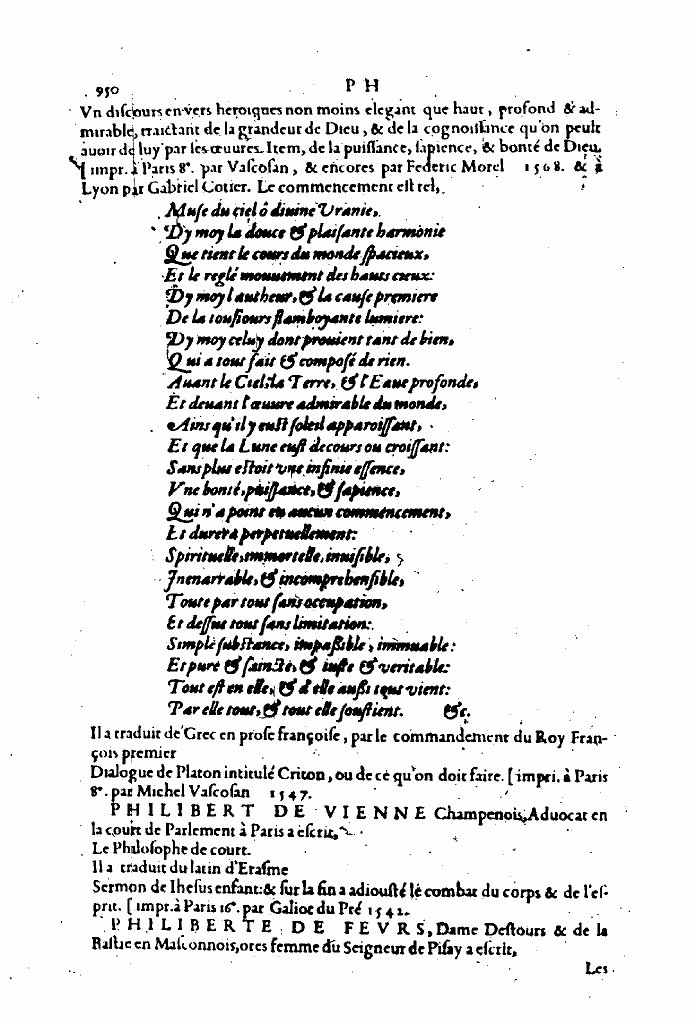 950 P H
Vn discours en vers heroiques non moins elegant que haut, profond & ad-
mirable, traictant de la grandeur de Dieu, & de la cognoissance qu'on peult
auoir de luy par ses œuures. Item, de la puissance, sapience, & bonté de Dieu.
[ impr. à Paris 8°. par Vascosan, & encores par Federic Morel 1568. & à
Lyon par Gabriel Cotier. Le commencement est tel,
Muse du ciel ô diuine Vranie,
Dy moy la douce & plaisante harmonie
Que tient le cours du monde spacieux,
Et le reglé mouuement des hauts cieux:
Dy moy l autheur, & la cause premiere
De la tousiours flamboyante lumiere:
Dy moy celuy dont prouient tant de bien,
Qui a tout fait & composé de rien.
Auant le Ciel, la Terre, & l'Eaue profonde,
Et deuant l'œuure admirable du monde,
Ains qu'il y eust soleil apparoissant,
Et que la Lune eust decours ou croissant:
Sans plus estoit vne infinie essence,
Vne bonté, puissance, & sapience,
Qui n'a point eu aucun commencement,
Et durera perpetuellement:
Spirituelle, immortelle, inuisible,
Inenarrable, & incomprehensible,
Toute par tout sans occupation,
Et dessue tout sans limitation:
Simple substance, impaßible, immuable:
Et pure & saincte, & iuste & veritable:
Tout est en elle, & d elle außi tout vient:
Par elle tout, & tout elle soustient. &c.
Il a traduit de Grec en prose françoise, par le commandement du Roy Fran-
çois premier
Dialogue de Platon intitulé Criton, ou de ce qu'on doit faire. [ impri. à Paris
8°. par Michel Vascosan 1547.
PHILIBERT DE VIENNE Champenois, Aduocat en
la court de Parlement à Paris a escrit,
Le Philosophe de court.
Il a traduit du latin d'Erasme
Sermon de Ihesus enfant: & sur la fin a adiousté le combat du corps & de l'es-
prit. [ impr. à Paris 16°. par Galiot du Pré 1542.
PHILIBERTE DE FEVRS, Dame Destours & de la
Bastie en Masconnois, ores femme du Seigneur de Pisay a escrit,
Les